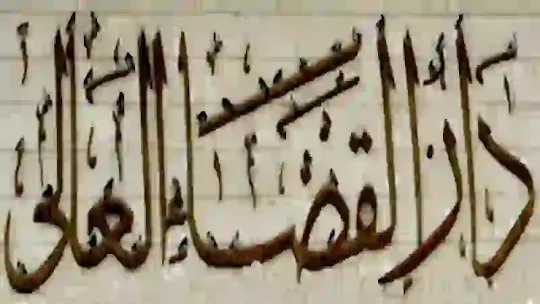 دار القضاء العالى